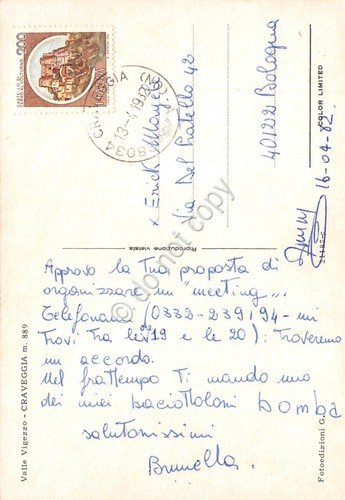 Approvo la Tua proposta di
organizzare un "meeting"...
Telefonami (0332-239194 - mi
trovi tra le ore 19 e le 20): Troveremo
un accordo.
Nel frattempo Ti mando uno
dei miei baciottoloni bomba
salutonissimi
Brunella.
x Erick
Via Del Pratello 42
40122 Bologna
16-04-82
28034 CRAVEGGIA (NO)
13-4-1982
200
Riproduzione vietata
COLOR LIMITED
Valle Vigezzo - CRAVEGGIA m. 889
Fotoedizioni G.
do not copy